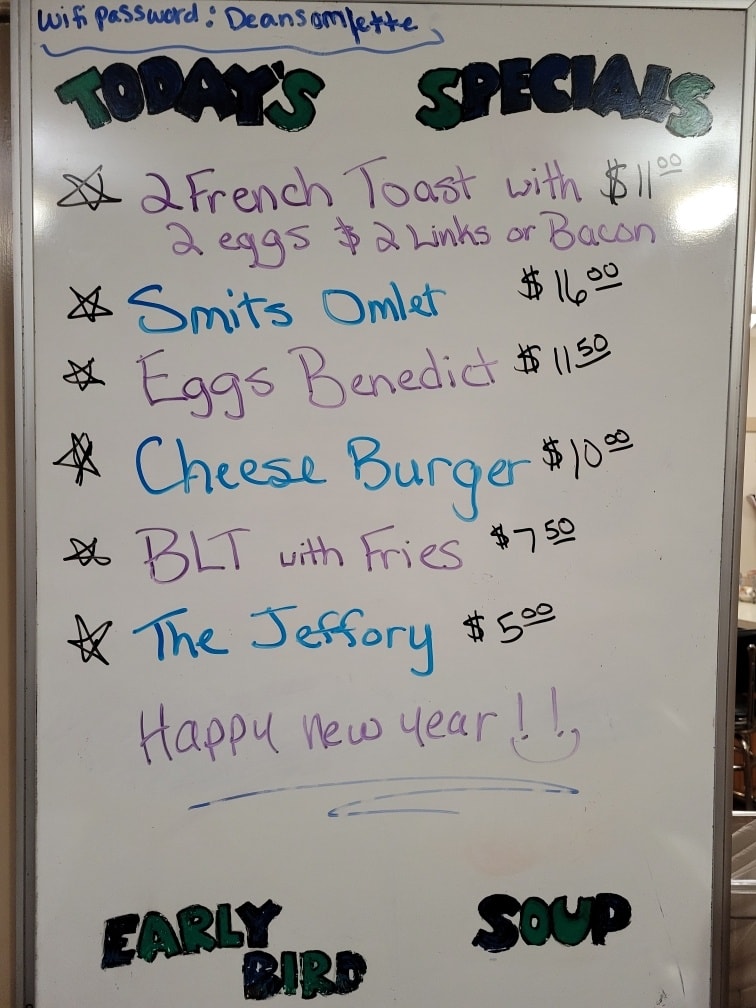 Wifi password: Deansomlette
TODAY'S SPECIALS
2 French Toast with $11.00
2 eggs $ 2 Links or Bacon
Smits Omlet $16.00
Eggs Benedict $11.50
Cheese Burger $10.00
BLT with Fries $7.50
The Jeffory $5.00
Happy new year!!
EARLY BIRD SOUP